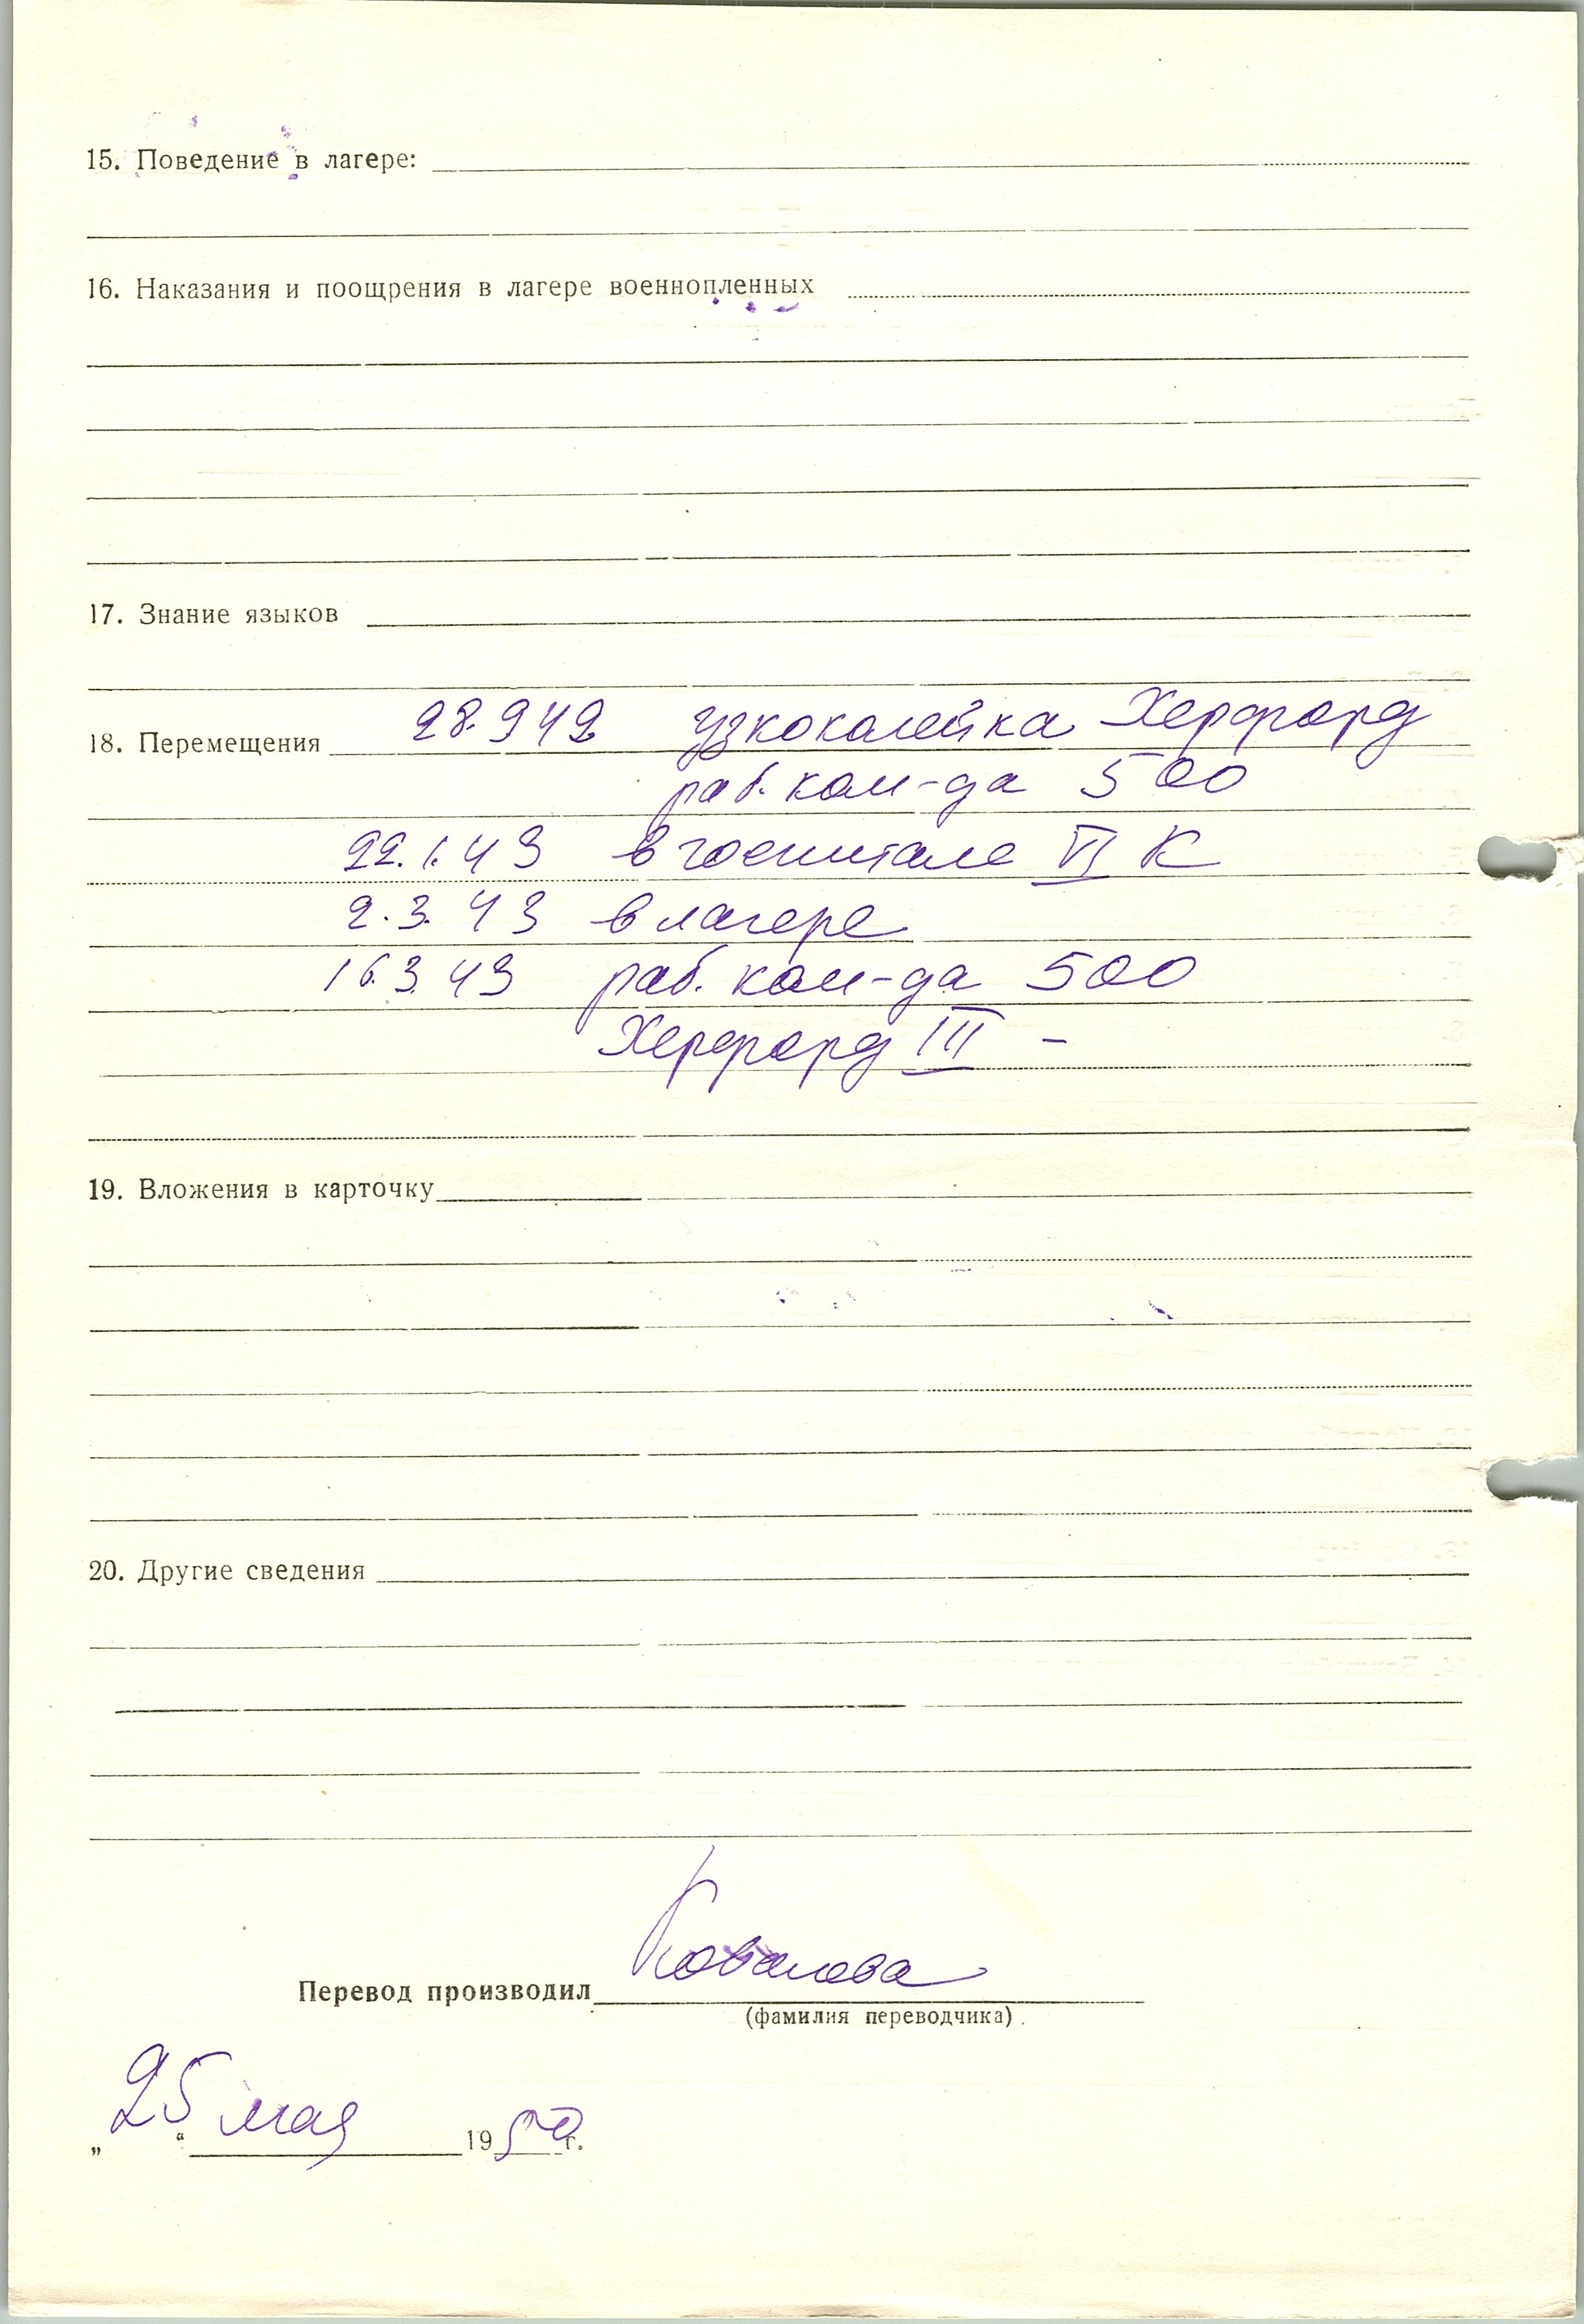 15. Поведение в лагере:
16. Наказания и поощрения в лагере военнопленных
17. Знание языков
18. Перемещения 28.9 42 узкоколейка Херфорд
раб. ком-да 500
22.1.43 в госпитале VI К
2.3.43 в лагере
16.3.43 раб. ком-да 500
Херфорд III –
19. Вложения в карточку
20. Другие сведения
Перевод производил Ковалова
(фамилия переводчика)
„25“ мая 1950 г.